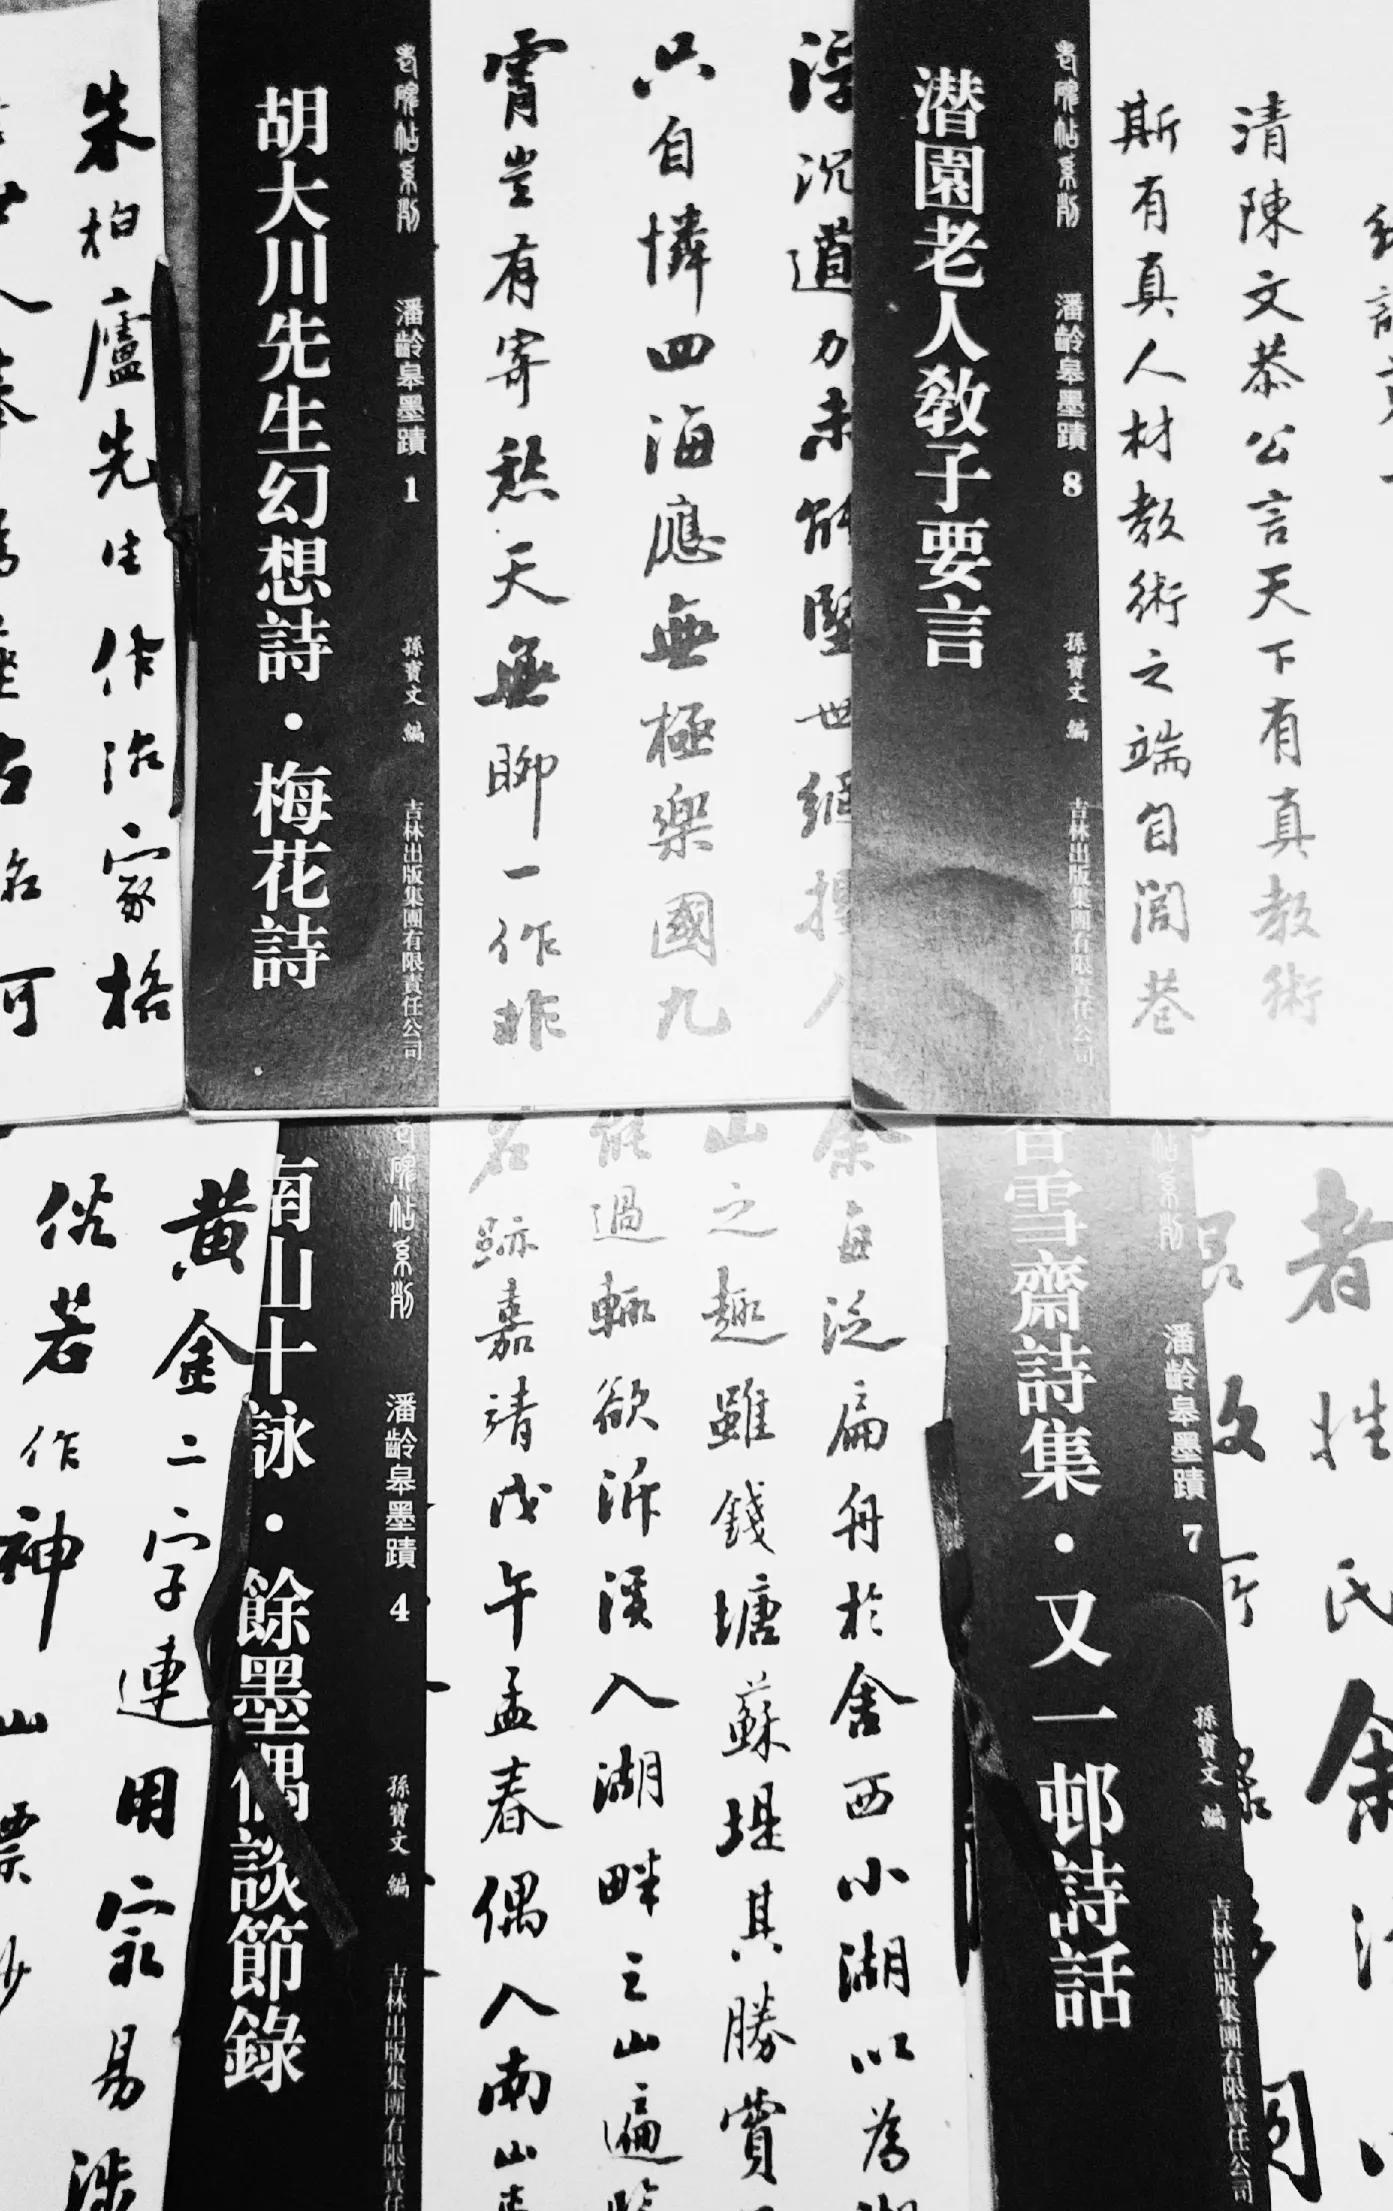 朱柏廬先生作治家格
老碑帖系列
潘齡皋墨蹟 1
孫寶文 編
吉林出版集團有限責任公司
胡大川先生幻想詩·梅花詩
浮沉道力未能堅世網攖人
只自憐四海應無極樂國九
霄豈有寄愁天無聊一作非
老碑帖系列
潘齡皋墨蹟 8
孫寶文 編
吉林出版集團有限責任公司
潛園老人教子要言
清陳文恭公言天下有真教術
斯有真人材教術之端自閭巷
黃金二字連用家易涉
俗若作神山縹緲
老碑帖系列
潘齡皋墨蹟 4
孫寶文 編
吉林出版集團有限責
南山十詠·餘墨偶談節錄
余每泛扁舟於舍西小湖以為湖
山之趣雖錢塘蘇堤其勝賞
能過輒欲泝溪入湖畔之山遍覽
名跡嘉靖戊午孟春偶入南山
帖系列
潘齡皋墨蹟 7
孫寶文 編
吉林出版集團有限責任公司
香雪齋詩集·又一邨詩話
者姓氏余